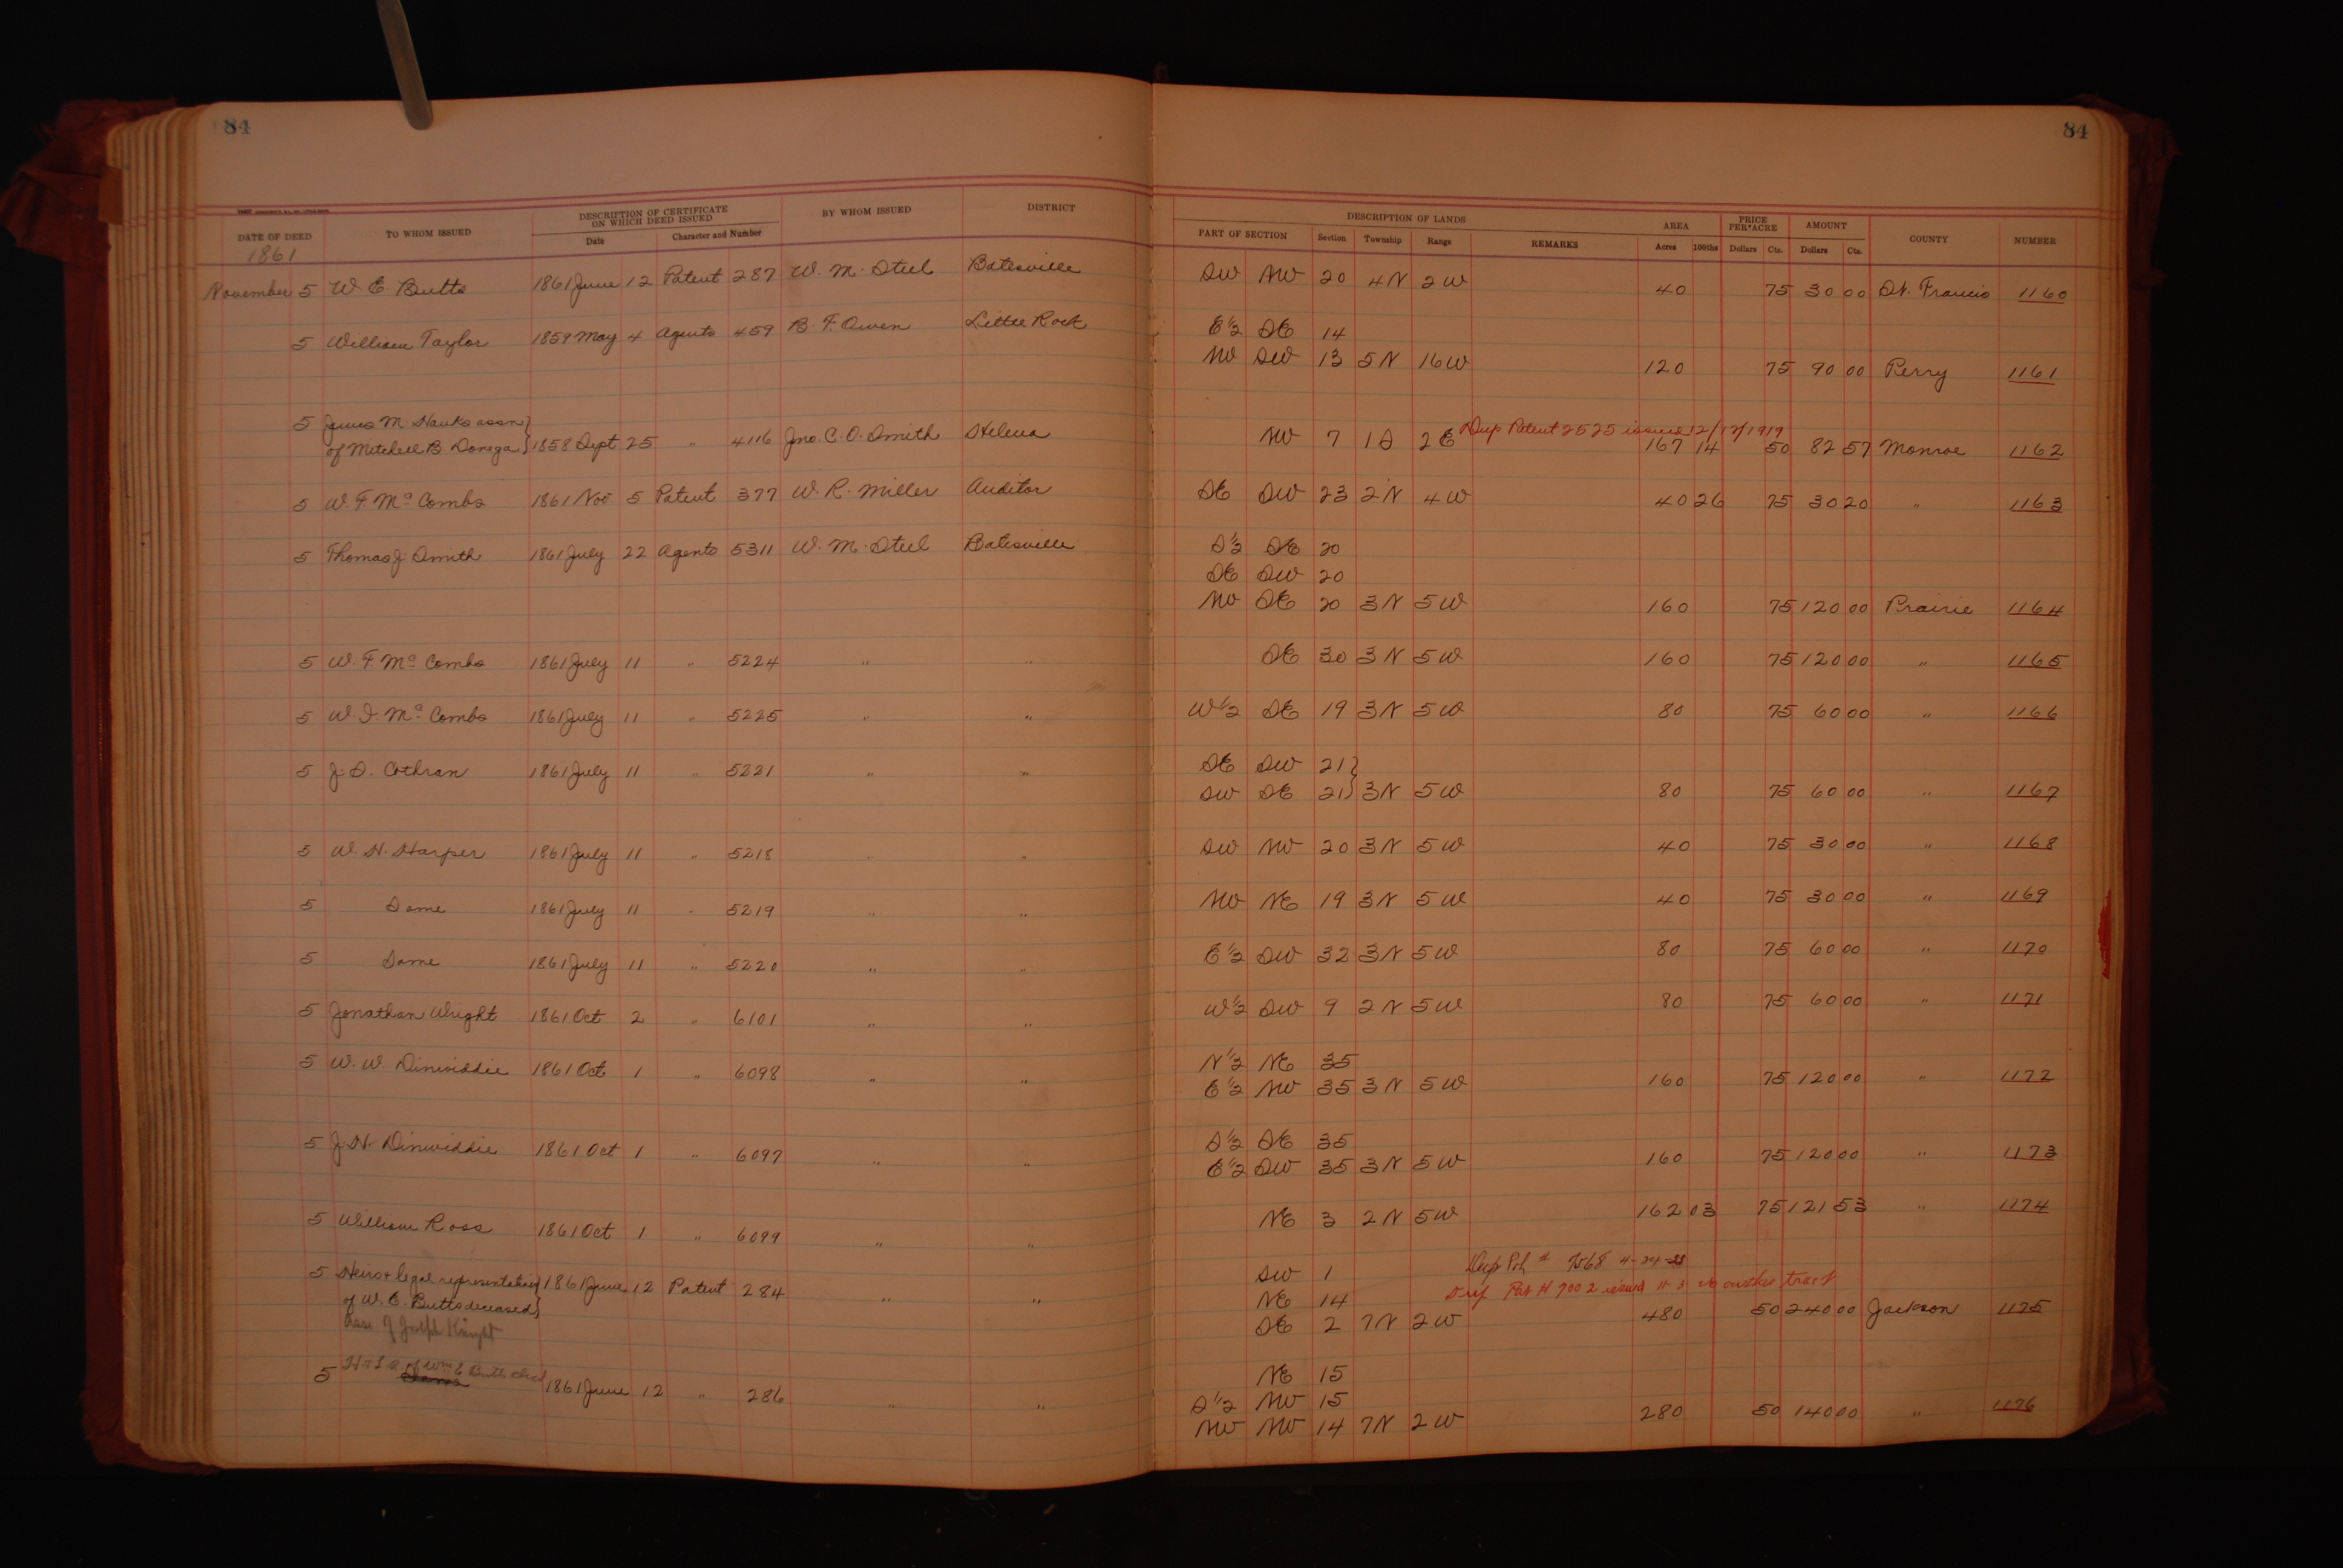 84 84
DATE OF DEED TO WHOM ISSUED DESCRIPTION OF CERTIFICATE ON WHICH DEED ISSUED Date Character and Number BY WHOM ISSUED DISTRICT DESCRIPTION OF LANDS PART OF SECTION Section Township Range REMARKS AREA Acres 100ths PRICE PER ACRE Dollars Cts. AMOUNT Dollars Cts. COUNTY NUMBER
1861
November 5 W. E. Butts 1861 June 12 Patent 287 W. M. Steel Batesville SW NW 20 4N 2W 40 75 30 00 St. Francis 1160
5 William Taylor 1859 May 4 Agents 459 B. F. Owen Little Rock E½ SE 14
NW SW 13 5N 16W 120 75 90 00 Perry 1161
5 James M. Hanks assn
of Mitchell B. Donega 1858 Sept 25 " 4116 Jno. C. O. Smith Helena NW 7 1S 2E Dup Patent 2525 issued 12/17/1919 167 14 50 82 57 Monroe 1162
5 W. F. Mc Combs 1861 Nov 5 Patent 377 W. R. Miller Auditor SE SW 23 2N 4W 40 26 75 30 20 " 1163
5 Thomas J. Smith 1861 July 22 Agents 5311 W. M. Steel Batesville S½ SE 20
SE SW 20
NW SE 20 3N 5W 160 75 120 00 Prairie 1164
5 W. F. Mc Combs 1861 July 11 " 5224 " " SE 30 3N 5W 160 75 120 00 " 1165
5 W. F. Mc Combs 1861 July 11 " 5225 " " W½ SE 19 3N 5W 80 75 60 00 " 1166
5 J. S. Cothran 1861 July 11 " 5221 " " SE SW 21
SW SE 21 3N 5W 80 75 60 00 " 1167
5 W. H. Harper 1861 July 11 " 5218 " " SW NW 20 3N 5W 40 75 30 00 " 1168
5 Same 1861 July 11 " 5219 " " NW NE 19 3N 5W 40 75 30 00 " 1169
5 Same 1861 July 11 " 5220 " " E½ SW 32 3N 5W 80 75 60 00 " 1170
5 Jonathan Wright 1861 Oct 2 " 6101 " " W½ SW 9 2N 5W 80 75 60 00 " 1171
5 W. W. Dinwiddie 1861 Oct 1 " 6098 " " N½ NE 35
E½ NW 35 3N 5W 160 75 120 00 " 1172
5 J. H. Dinwiddie 1861 Oct 1 " 6097 " " S½ SE 35
E½ SW 35 3N 5W 160 75 120 00 " 1173
5 William Ross 1861 Oct 1 " 6099 " " NE 3 2N 5W 162 03 75 121 53 " 1174
5 Heirs & legal representatives 1861 June 12 Patent 284 " " SW 1 Dup Pat # 7568 4-24-
of W. E. Butts deceased NE 14 Dup Pat # 7002 issued 11-3- another tract
of Joseph Knight SE 2 7N 2W 480 50 240 00 Jackson 1175
H & L R of Wm E Butts decd NE 15
5 Same 1861 June 12 " 286 " " S½ NW 15
NW NW 14 7N 2W 280 50 140 00 " 1176